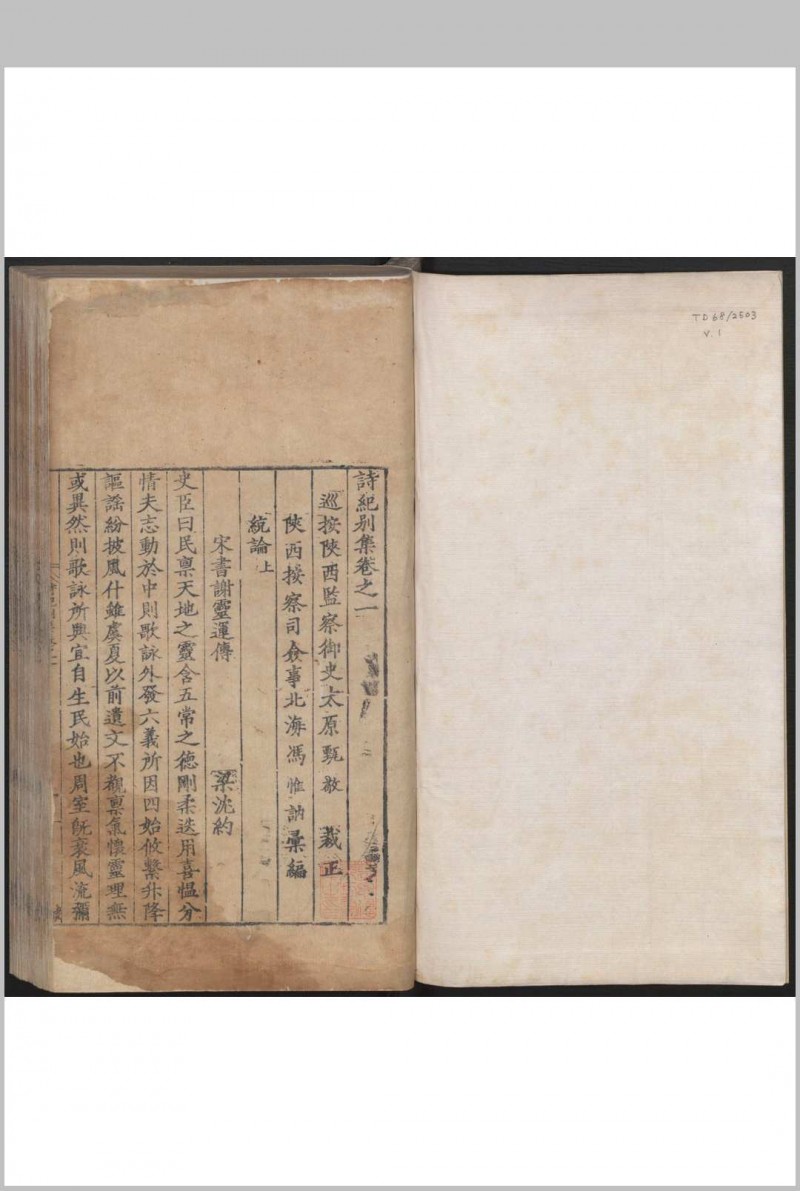 詩紀别集卷之一
巡按陝西監察御史太原甄敬 裁正
陝西按察司僉事北海馮惟訥彙編
統論上
宋書謝靈運傳 梁沈約
史臣曰民禀天地之靈含五常之德剛柔迭用喜愠分
情夫志動於中則歌詠外發六義所因四始攸繫升降
謳謡紛披風什雖虞夏以前遺文不覩禀氣懷靈理無
或異然則歌詠所興宜自生民始也周室旣衰風流彌
TD 68/2503
V. 1